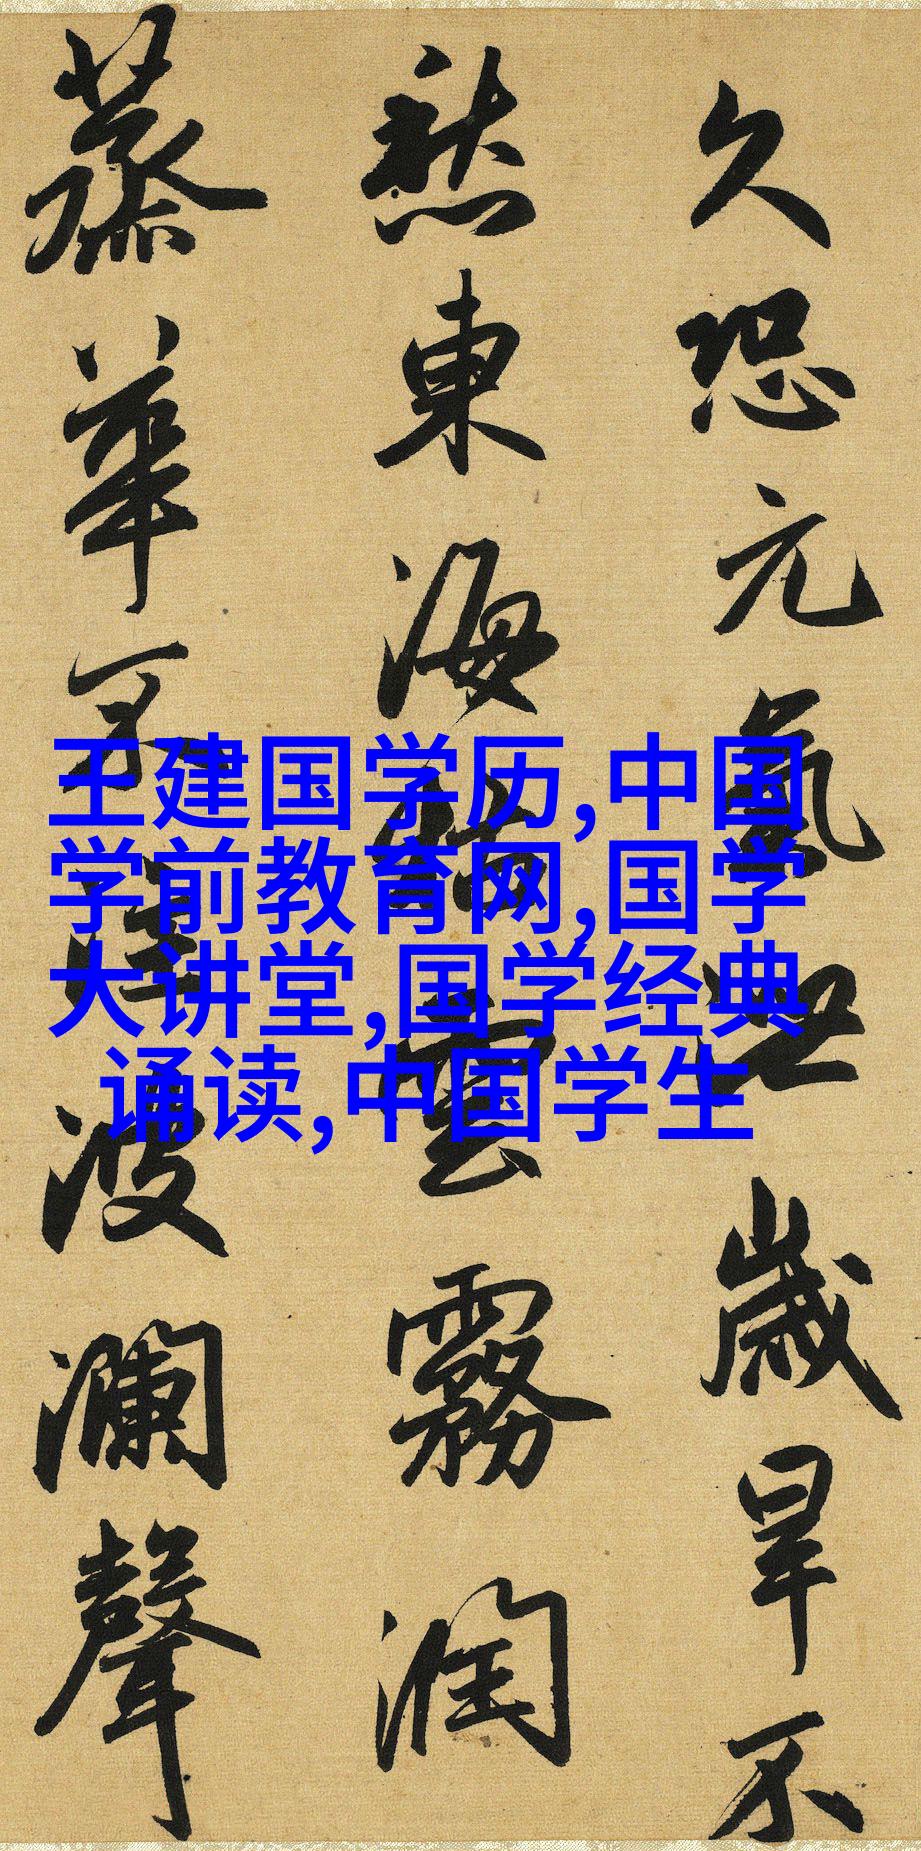 久恐元氣泄歲旱不
愁東海枯雲霧潤
蒸華不注波瀾聲
王建国学历,中国
学前教育网,国学
大讲堂,国学经典
诵读,中国学生